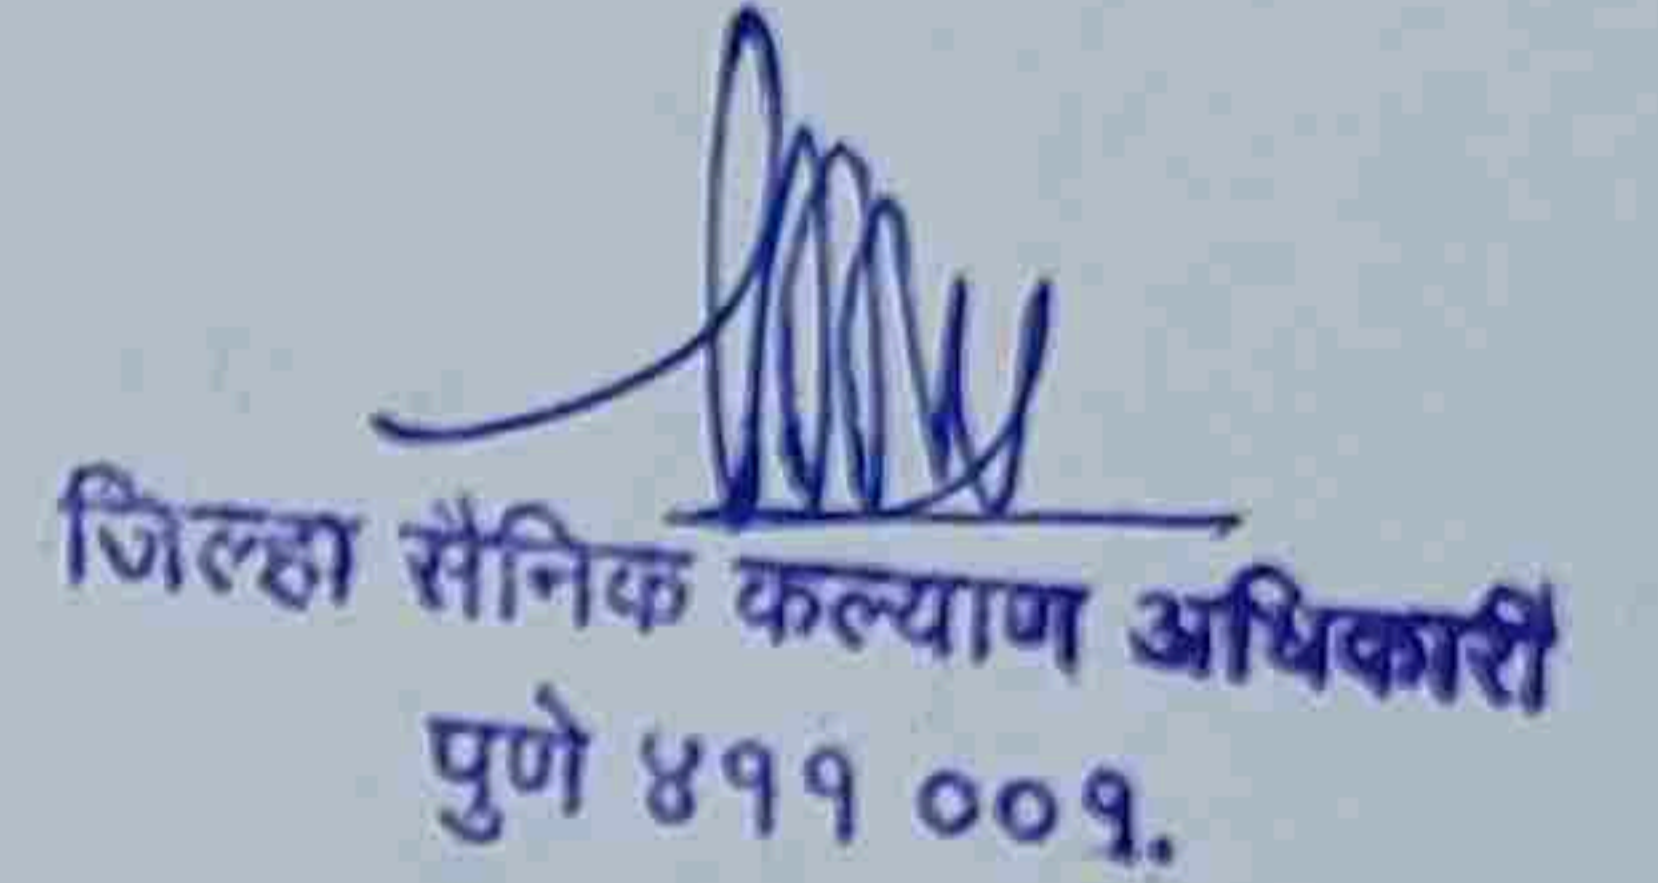 जिल्हा सैनिक कल्याण अधिकारी
पुणे ४११ ००१.